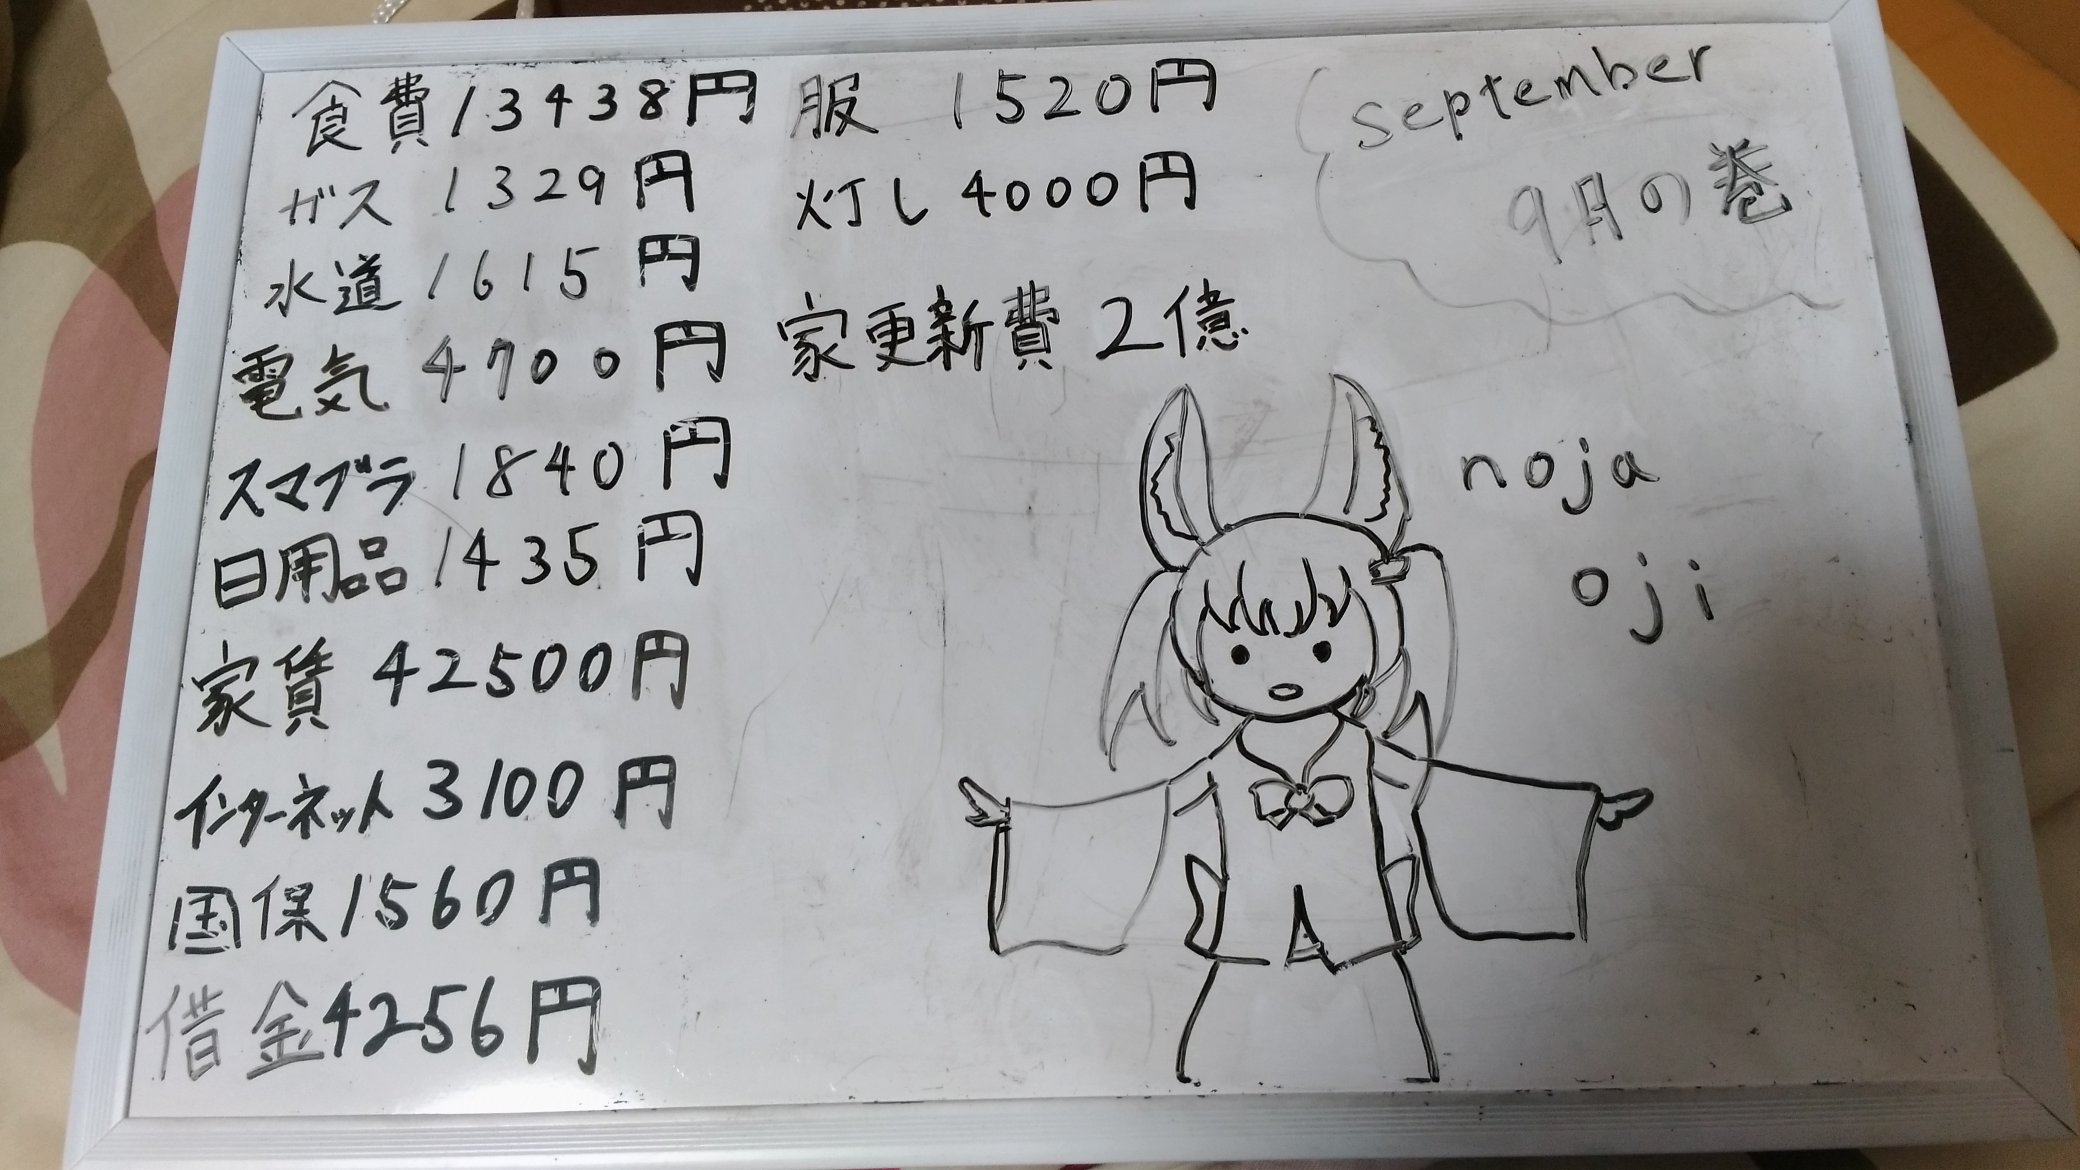 食費 13438円
ガス 1329円
水道 1615円
電気 4700円
スマブラ 1840円
日用品 1435円
家賃 42500円
インターネット 3100円
国保 1560円
借金 4256円
服 1520円
灯し 4000円
家更新費 2億
September
9月の巻
noja
oji